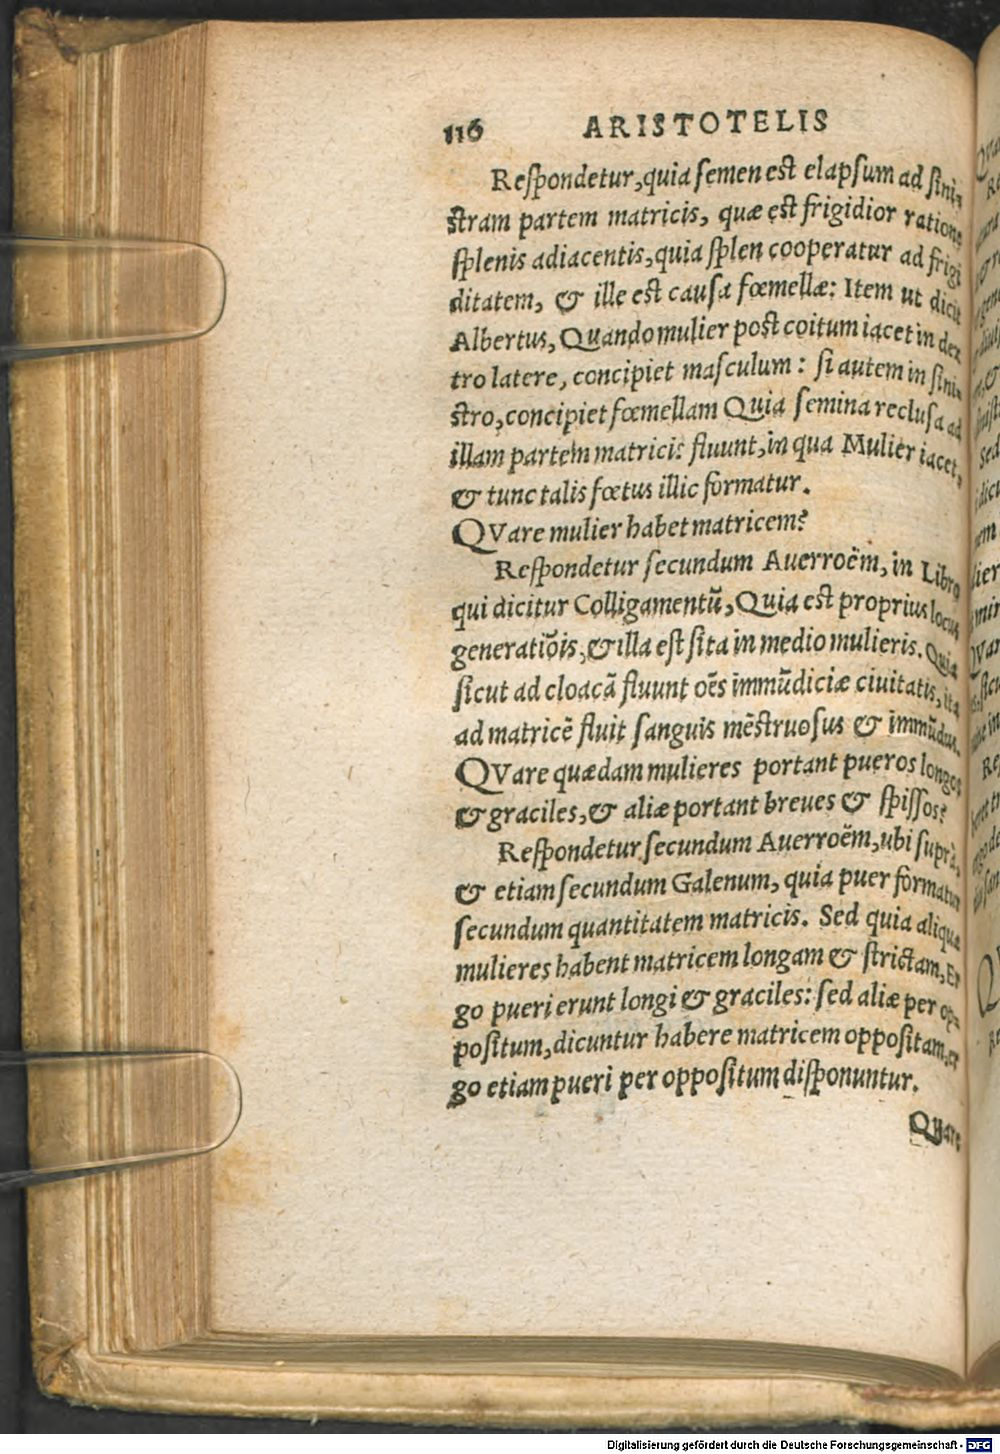 116 ARISTOTELIS
Respondetur, quia semen est elapsum ad sini-
stram partem matricis, quæ est frigidior ratione
splenis adiacentis, quia splen cooperatur ad frigi
ditatem, & ille est causa fœmellæ: Item ut dicit
Albertus, Quando mulier post coitum iacet in dex
tro latere, concipiet masculum: si autem in sini-
stro, concipiet fœmellam Quia semina reclusa ad
illam partem matricis fluunt, in qua Mulier iacet,
& tunc talis fœtus illic formatur.
QVare mulier habet matricem?
Respondetur secundum Auerroëm, in Libro
qui dicitur Colligamentũ, Quia est proprius locus
generatiõis, & illa est sita in medio mulieris. Quia
sicut ad cloacã fluunt oẽs immũdiciæ ciuitatis, ita
ad matricẽ fluit sanguis mẽstruosus & immũdus.
QVare quædam mulieres portant pueros longos
& graciles, & aliæ portant breues & spissos?
Respondetur secundum Auerroëm, ubi suprà,
& etiam secundum Galenum, quia puer formatur
secundum quantitatem matricis. Sed quia aliquæ
mulieres habent matricem longam & strictam, Er
go pueri erunt longi & graciles: sed aliæ per op-
positum, dicuntur habere matricem oppositam, er
go etiam pueri per oppositum disponuntur.
Quare
Digitalisierung gefördert durch die Deutsche Forschungsgemeinschaft - DFG